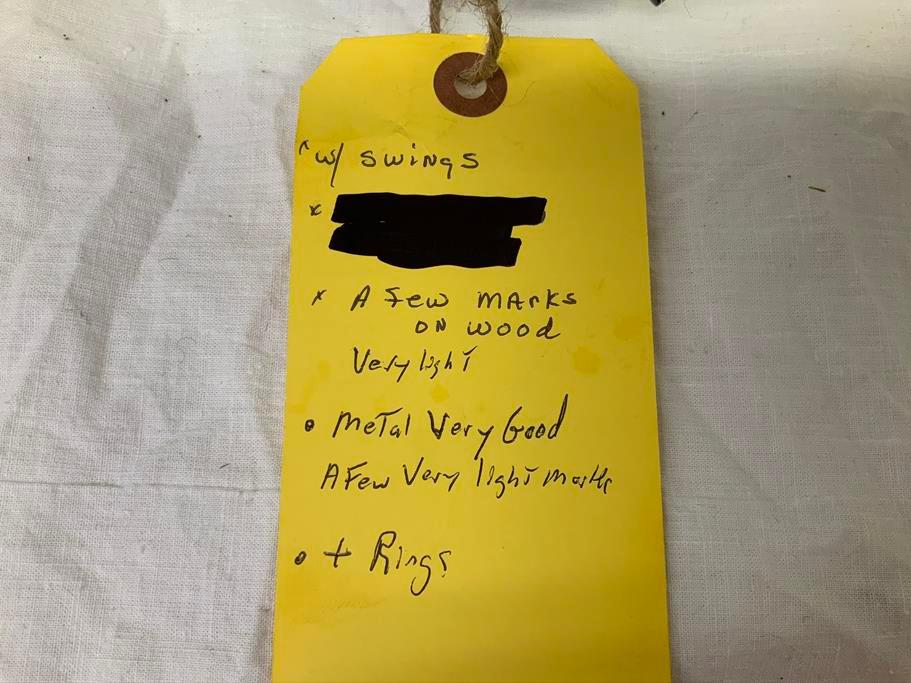 w/ swings
x
x A few marks
on wood
Very light
• Metal Very Good
A Few Very light marks
• + Rings